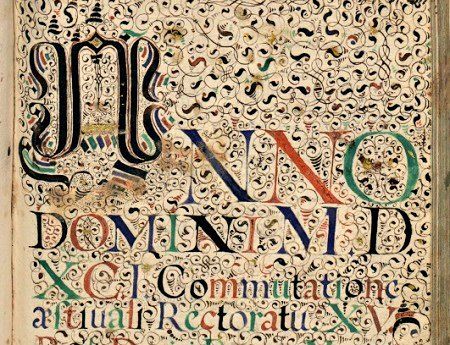 ANNO
DOMINI M. D
XCI. Commutatione
æſtiuali Rectoratu. XV